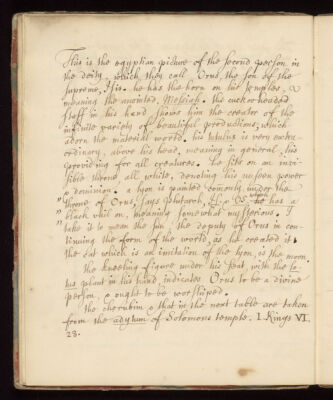 This is the egyptian picture of the second person in
the deity, which they call Orus, the son of the
supreme, Isis. he has the horn on his temples, &
meaning the anointed, Messiah. the cuckowheaded
staff in his hand shows him the creator of the
infinite variety of beautiful productions, which
adorn the material world. his tutulus is very extra-
ordinary, above his head, meaning in general, his
providing for all creatures. he sits on an invi-
sible throne all white, denoting his unseen power
& dominion. a lyon is painted com̄only under the
throne of Orus, says Plutarch, he has a
black vail on, meaning somewhat mysterious. I
take it to mean the sun, the deputy of Orus in con-
tinuing the form of the world, as he created it.
the cat which is an imitation of the lyon, is the moon.
the kneeling figure under his seat, with the lo-
tus plant in his hand indicates Orus to be a divine
person, & ought to be worshiped.
the cherubim & that in the next table are taken
from the adytum of Solomons temple. I. Kings VI.
23.